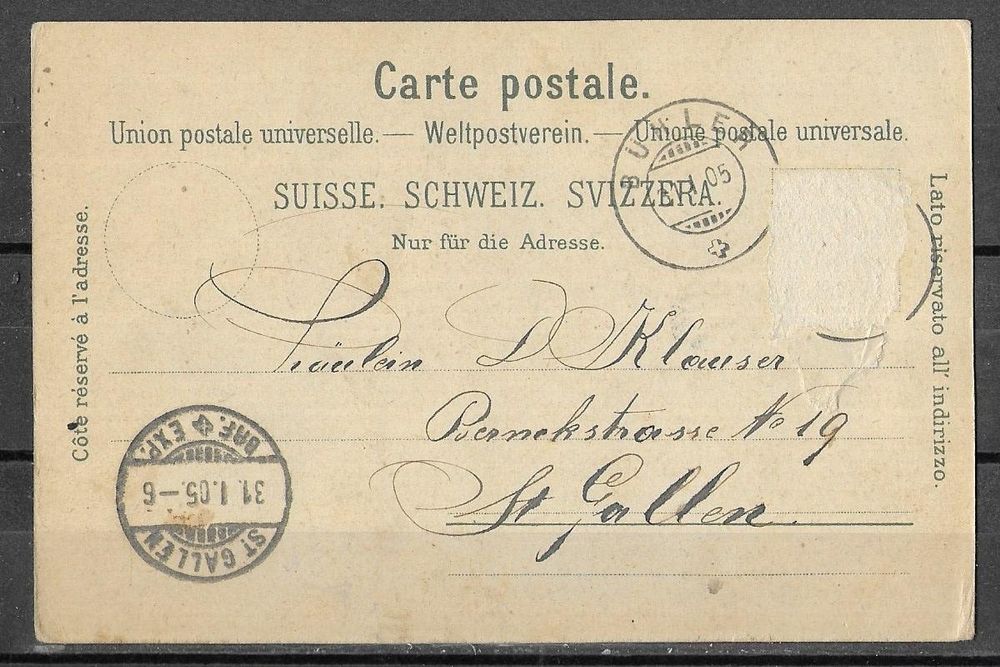 Carte postale.
Union postale universelle. — Weltpostverein. — Unione postale universale.
SUISSE. SCHWEIZ. SVIZZERA.
Nur für die Adresse.
Côté réservé à l'adresse.
Lato riservato all' indirizzo.
BÜHLER
1.05
Fräulein D Klauser
Bernekstrasse No 19
St Gallen
BRF. EXP.
31.1.05.-6
ST. GALLEN